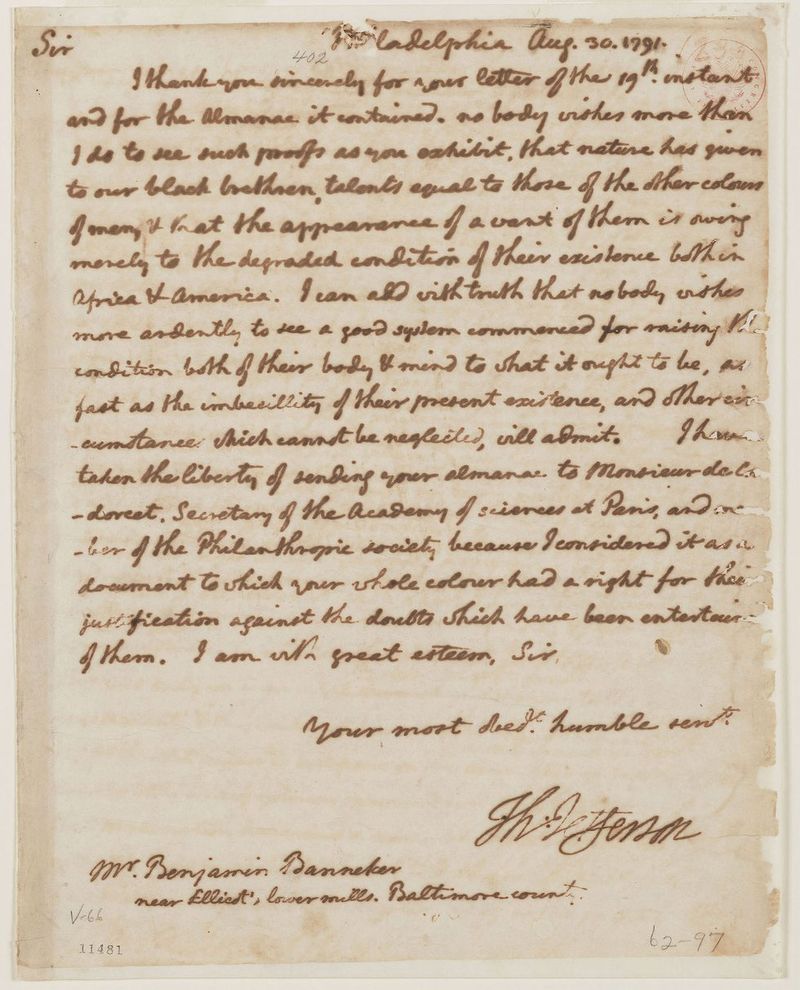 Sir
Philadelphia Aug. 30. 1791.
402
I thank you sincerely for your letter of the 19th. instant
and for the Almanac it contained. no body wishes more than
I do to see such proofs as you exhibit, that nature has given
to our black brethren, talents equal to those of the other colours
of men, & that the appearance of a want of them is owing
merely to the degraded condition of their existence both in
Africa & America. I can add with truth that no body wishes
more ardently to see a good system commenced for raising the
condition both of their body & mind to what it ought to be, as
fast as the imbecillity of their present existence, and other cir
-cumstances which cannot be neglected, will admit. I have
taken the liberty of sending your almanac to Monsieur de Co
-dorcet, Secretary of the Academy of sciences at Paris, and me
-ber of the Philanthropic society because I considered it as a
document to which your whole colour had a right for their
justification against the doubts which have been entertain
of them. I am with great esteem, Sir,
Your most obedt. humble servt.
Th: Jefferson
Mr. Benjamin Banneker
near Ellicot's, lower mills. Baltimore county.
V-66
11481
62-97